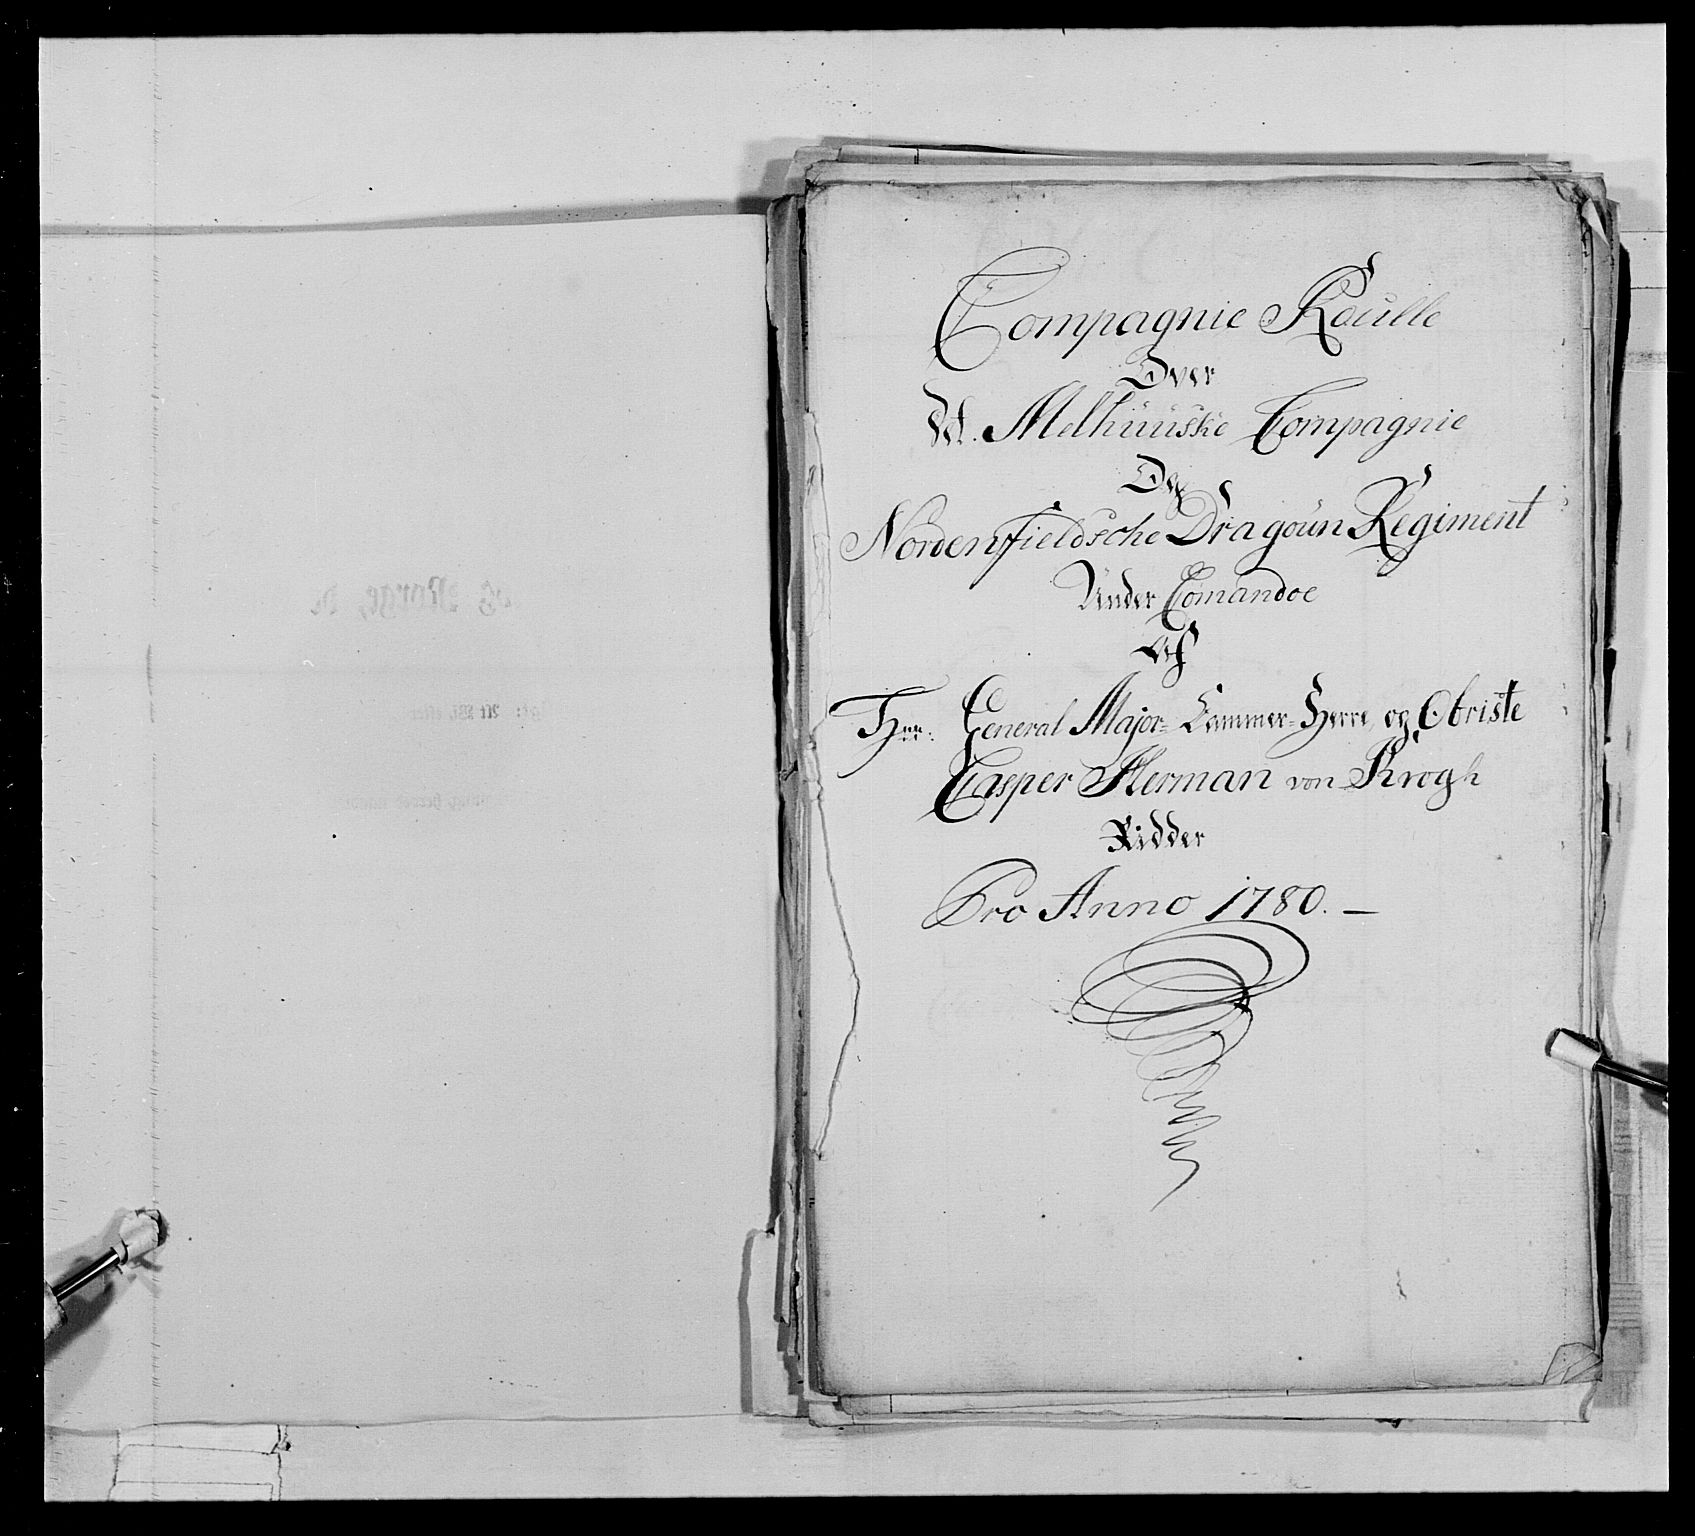 Compagnie Roulle
Over
Vel. Melhuuske Compagnie
Det
Nordenfieldsche Dragoun Regiment
Under Comandoe
Af
Hrr: General Major- Cammer-Herre, og Obriste
Casper Herman von Krogh
Ridder
Pro Anno 1780. —
og Norge, de